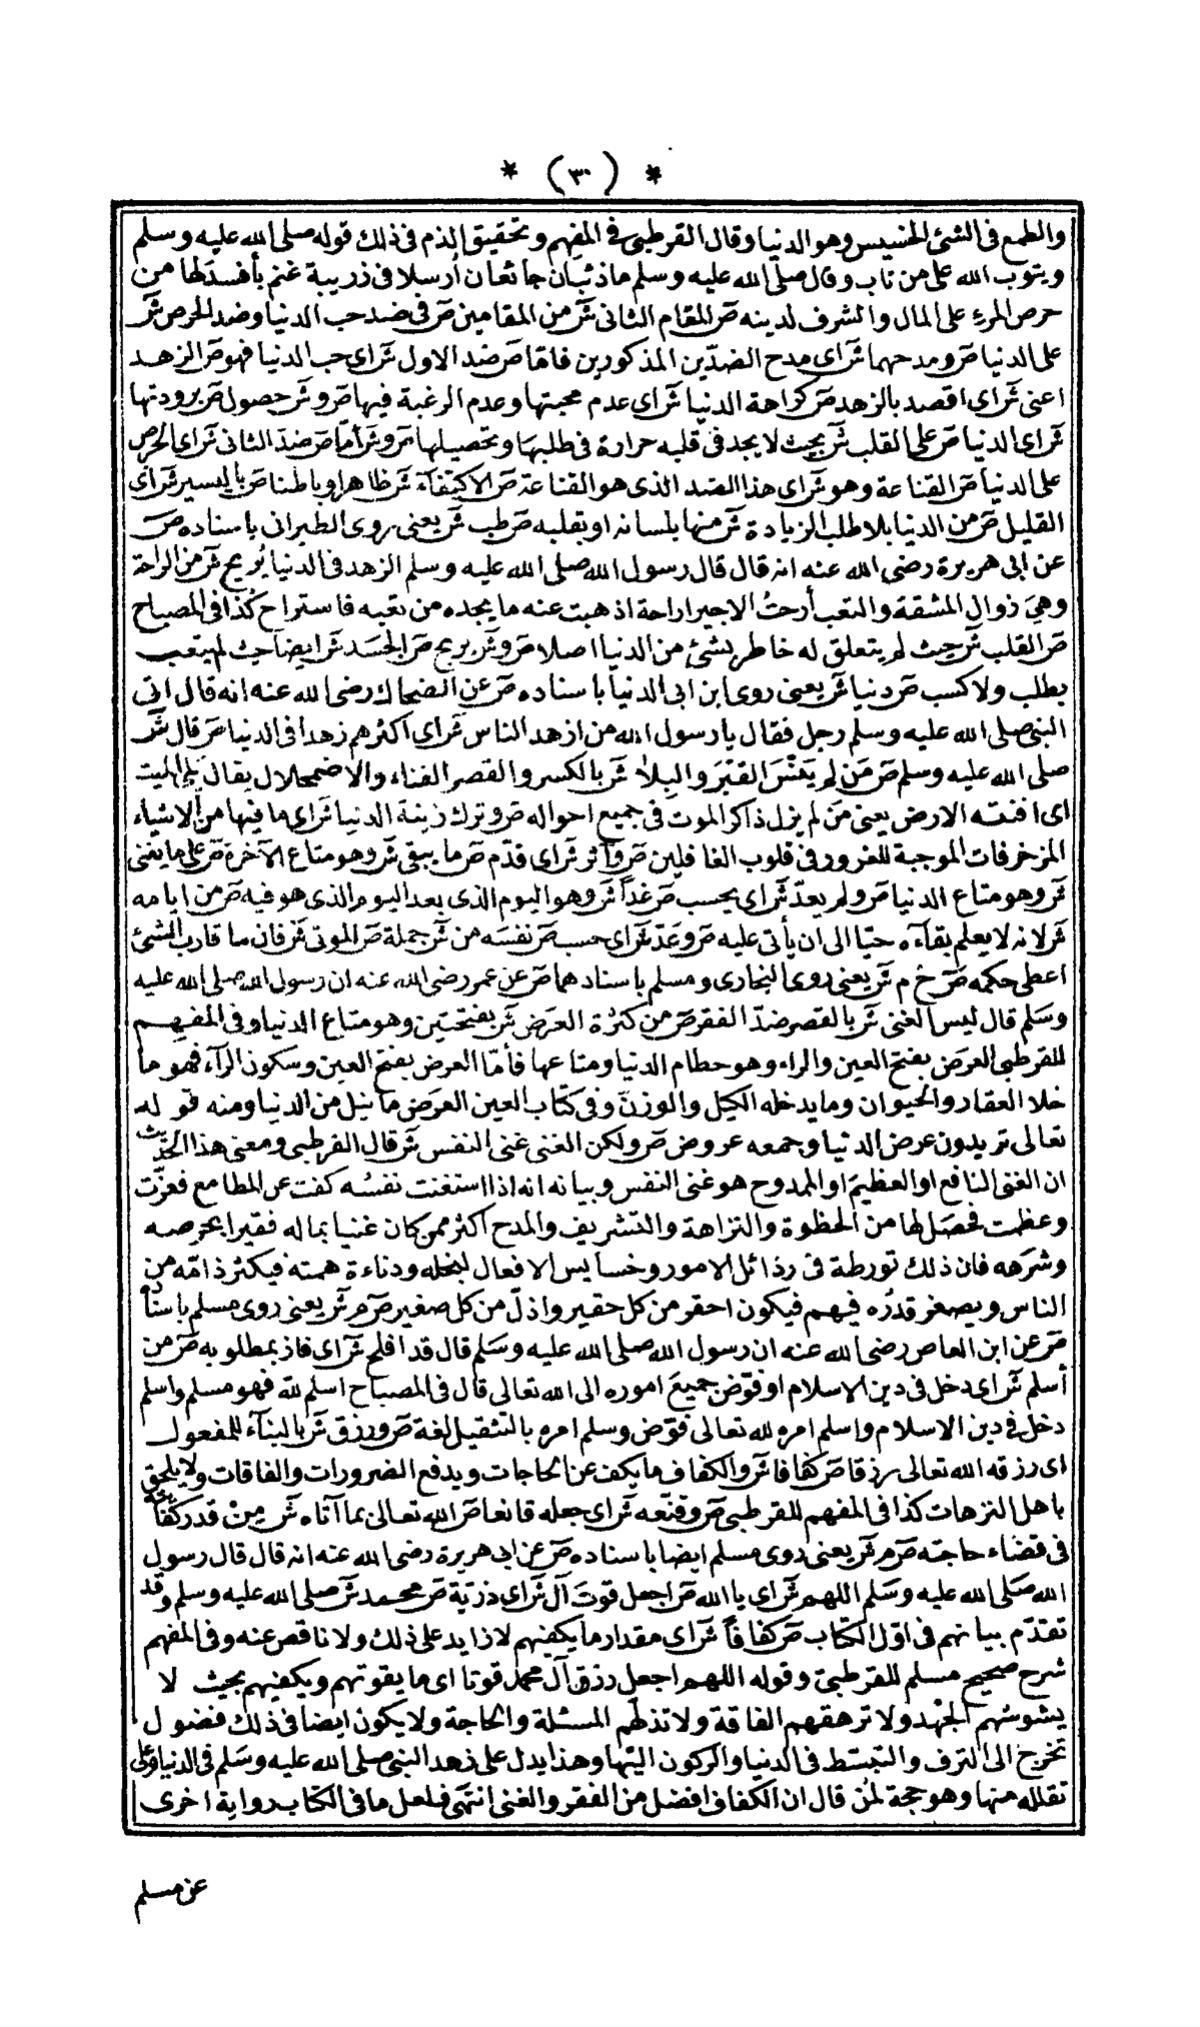 * (٣٠) *
والطمع فى الشئ الخسيس وهو الدنيا وقال القرطبى فى المفهم وتحقيق الذم فى ذلك قوله صلى الله عليه وسلم
ويتوب الله على من تاب وقال صلى الله عليه وسلم ماذئبان جائعان أرسلا فى زريبة غنم بأفسد لها من
حرص المرء على المال والشرف لدينه صَ المقام الثانى شَ من المقامين صَ فى ضد حب الدنيا وضد الحرص شَ
على الدنيا صَ ومدحهما شَ اى مدح الضدّين المذكورين فامّا صَ ضد الاول شَ اى حب الدنيا فهو صَ الزهد
اعنى شَ اى اقصد بالزهد صَ كراهة الدنيا شَ اى عدم محبتها وعدم الرغبة فيها صَ و شَ حصول صَ برودتها
شَ اى الدنيا صَ على القلب شَ بحيث لا يجد فى قلبه حرارة فى طلبها وتحصيلها صَ و شَ أمّا صَ ضدّ الثانى شَ اى الحرص
على الدنيا صَ القناعة وهو شَ اى هذا الضد الذى هو القناعة صَ الاكتفآء شَ ظاهرا وباطنا صَ باليسير شَ اى
القليل صَ من الدنيا بلا طلب الزيادة شَ منها بلسانه او بقلبه صَ طب شَ يعنى روى الطبرانى باسناده صَ
عن ابى هريرة رضى الله عنه انه قال قال رسول الله صلى الله عليه وسلم الزهد فى الدنيا يُريح شَ من الراحة
وهى زوال المشقة والتعب أرحتُ الاجير اراحة اذهبت عنه ما يجده من تعبه فاستراح كذا فى المصباح
صَ القلب شَ حيث لم يتعلق له خاطر بشئ من الدنيا اصلا صَ و شَ يريح صَ الجسَد شَ ايضا حيث لم يتعب
بطلب ولا كسب صَ دنيا شَ يعنى روى ابن ابى الدنيا باسناده صَ عن الضحاك رضى الله عنه انه قال اتى
النبى صلى الله عليه وسلم رجل فقال يا رسول الله من ازهد الناس شَ اى اكثرهم زهدا فى الدنيا صَ قال شَ
صلى الله عليه وسلم صَ مَن لم يَنْسَ القبْرَ والبلا شَ بالكسر والقصر الفناء والاضمحلال يقال بلى الميت
اى افنته الارض يعنى مَن لم يزل ذاكر الموت فى جميع احواله صَ وترك زينة الدنيا شَ اى ما فيها من الاشياء
المزخرفات الموجبة للغرور فى قلوب الغافلين صَ وآثر شَ اى قدّم صَ ما يبقى شَ وهو متاع الآخرة صَ على ما يفنى
شَ وهو متاع الدنيا صَ ولم يعدّ شَ اى يحسب صَ غداً شَ وهو اليوم الذى بعد اليوم الذى هو فيه صَ من ايامه
شَ لانه لا يعلم بقاءه حيّا الى ان يأتى عليه صَ وعَدّ شَ اى حسب صَ نفسَه من شَ جملة صَ الموتى شَ فان ما قارب الشئ
اعطى حكمه صَ خ م شَ يعنى روى البخارى ومسلم باسنادهما صَ عن عمر رضى الله عنه ان رسول الله صلى الله عليه
وسلم قال ليس الغنى شَ بالقصر ضدّ الفقر صَ من كثرة العرَض شَ بفتحتين وهو متاع الدنيا وفى المفهم
للقرطبى العرَض بفتح العين والراء وهو حطام الدنيا ومتاعها فأمّا العرض بفتح العين وسكون الرآء فهو ما
خلا العقار والحيوان وما يدخله الكيل والوزن وفى كتاب العين العرَض ما نيل من الدنيا ومنه قوله
تعالى تريدون عرض الدنيا وجمعه عروض صَ ولكن الغنى غنى النفس شَ قال القرطبى ومعنى هذا الحديث
ان الغنى النافع او العظيم او الممدوح هو غنى النفس وبيانه انه اذا استغنت نفسُه كفت عن المطامع فعزّت
وعظمت فحصَل لها من الحظوة والنزاهة والتشريف والمدح اكثر ممن كان غنيا بماله فقيرا بحرصه
وشرَهه فان ذلك تورطة فى رذائل الامور وخسايس الافعال لبخله ودناءة همته فيكثر ذامّه من
الناس ويصغر قدرُه فيهم فيكون احقر من كل حقير واذلّ من كل صغير صَ م شَ يعنى روى مسلم باسناده
صَ عن ابن العاص رضى الله عنه ان رسول الله صلى الله عليه وسَلم قال قد افلح شَ اى فاز بمطلوبه صَ من
أسلم شَ اى دخل فى دين الاسلام او فوّض جميعَ اموره الى الله تعالى قال فى المصباح اسلم لله فهو مسلم واسلم
دخل فى دين الاسلام واسلم امره لله تعالى فوّض وسلم امره بالتثقيل لغة صَ ورزق شَ بالبنآء للمفعول
اى رزقه الله تعالى رزقا صَ كفافا شَ والكفاف ما يكف عن الحاجات ويدفع الضرورات والفاقات ولا يلحق
باهل النزهات كذا فى المفهم للقرطبى صَ وقنّعه شَ اى جعله قانعا صَ الله تعالى بما آتاه شَ مِنْ قدر كفايته
فى قضاء حاجته صَ م شَ يعنى روى مسلم ايضا باسناده صَ عن ابى هريرة رضى الله عنه انه قال قال رسول
الله صَلى الله عليه وسَلم اللهم شَ اى يا الله صَ اجعل قوتَ آل شَ اى ذريّة صَ محمد شَ صلى الله عليه وسلم وقد
تقدّم بيانهم فى اوّل الكتاب صَ كفافاً شَ اى مقدار ما يكفيهم لا زايد على ذلك ولا ناقص عنه وفى المفهم
شرح صحيح مسلم للقرطبىّ وقوله اللهم اجعل رزق آل محمد قوتا اى ما يقوتهم ويكفيهم بحيث لا
يشوشهم الجهْد ولا ترهقهم الفاقة ولا تذلهم المسئلة والحاجة ولا يكون ايضا فى ذلك فضول
تخرج الى الترف والتبسّط فى الدنيا والركون اليها وهذا يدل على زهد النبى صلى الله عليه وسَلم فى الدنيا وعلى
تقلله منها وهو حجة لمَن قال ان الكفاف افضل من الفقر والغنى انتهى فلعل ما فى الكتاب رواية اخرى
عن مسلم